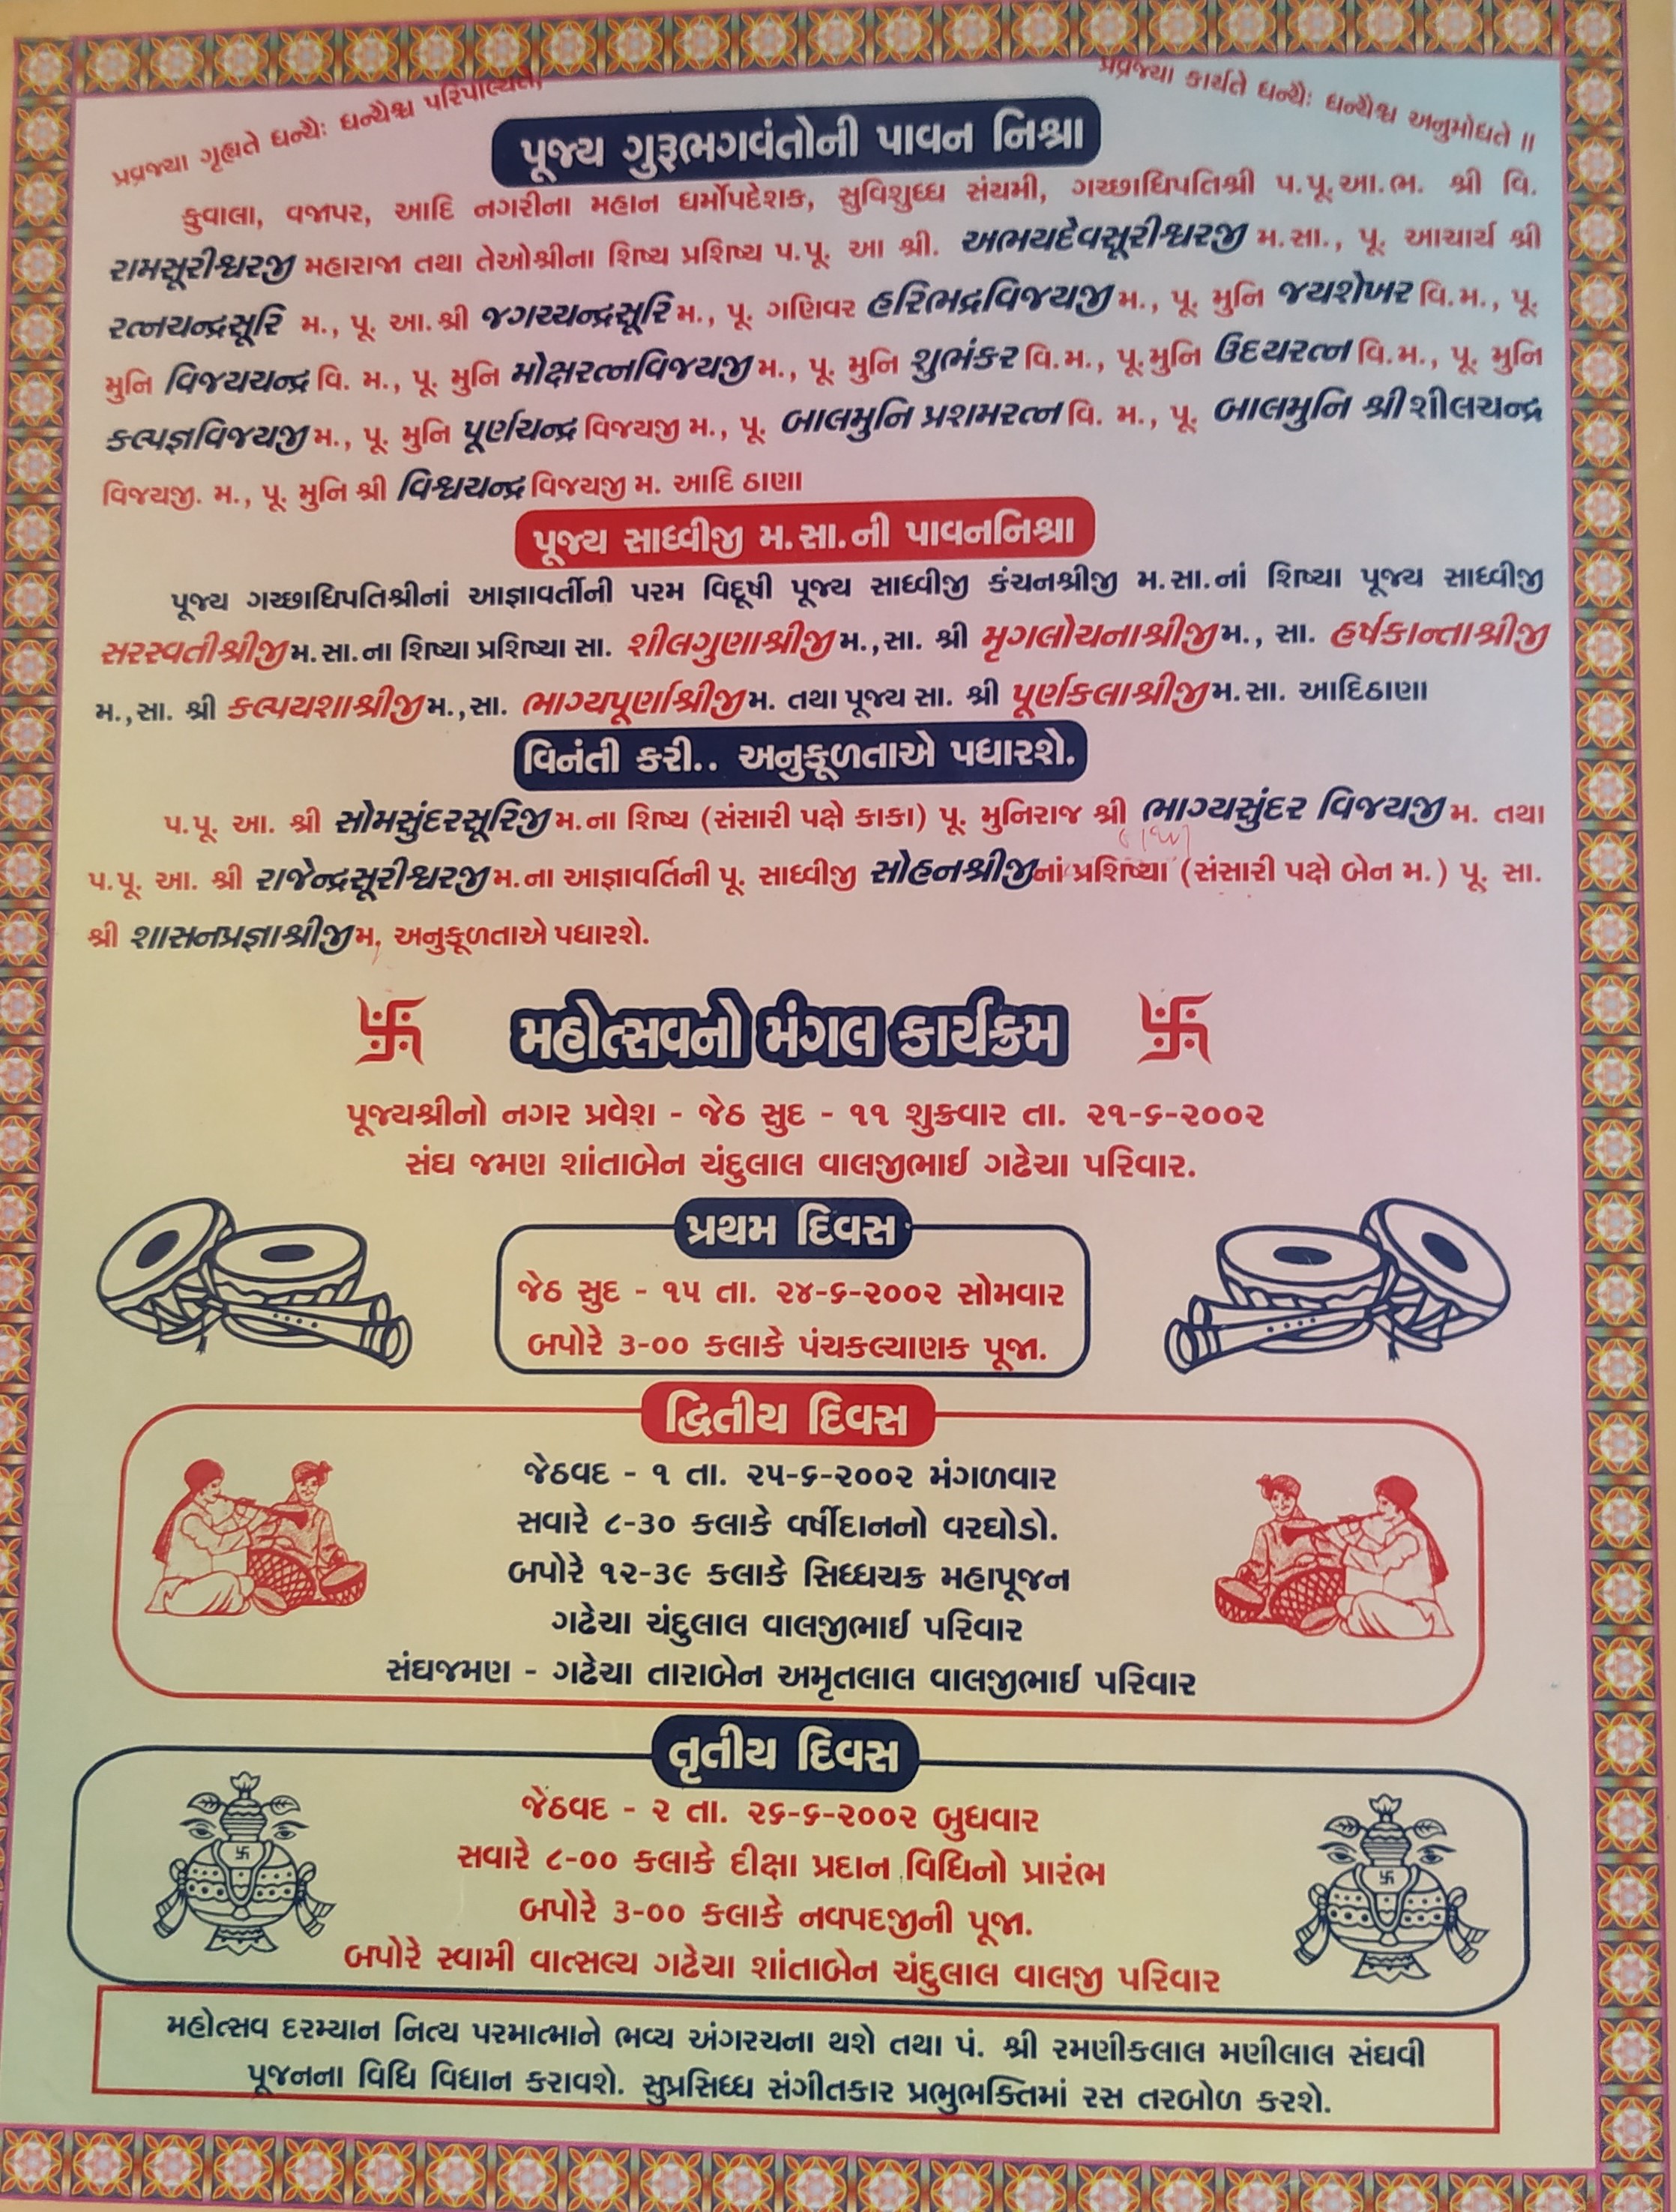 પ્રવ્રજ્યા ગૃહ્યતે ધન્યૈઃ ધન્યૈશ્ચ પરિપાલ્યતે,
પ્રવ્રજ્યા કાર્યતે ધન્યૈઃ ધન્યૈશ્ચ અનુમોધતે ॥
પૂજ્ય ગુરૂભગવંતોની પાવન નિશ્રા
કુવાલા, વજાપર, આદિ નગરીના મહાન ધર્મોપદેશક, સુવિશુધ્ધ સંયમી, ગચ્છાધિપતિશ્રી પ.પૂ.આ.ભ. શ્રી વિ.
રામસૂરીશ્વરજી મહારાજા તથા તેઓશ્રીના શિષ્ય પ્રશિષ્ય પ.પૂ. આ શ્રી. અભયદેવસૂરીશ્વરજી મ.સા., પૂ. આચાર્ય શ્રી
રત્નચન્દ્રસૂરિ મ., પૂ. આ.શ્રી જગચ્ચન્દ્રસૂરિ મ., પૂ. ગણિવર હરિભદ્રવિજયજી મ., પૂ. મુનિ જયશેખર વિ.મ., પૂ.
મુનિ વિજયચન્દ્ર વિ. મ., પૂ. મુનિ મોક્ષરત્નવિજયજી મ., પૂ. મુનિ શુભંકર વિ.મ., પૂ.મુનિ ઉદયરત્ન વિ.મ., પૂ. મુનિ
કલ્પજ્ઞવિજયજી મ., પૂ. મુનિ પૂર્ણચન્દ્ર વિજયજી મ., પૂ. બાલમુનિ પ્રશમરત્ન વિ. મ., પૂ. બાલમુનિ શ્રી શીલચન્દ્ર
વિજયજી. મ., પૂ. મુનિ શ્રી વિશ્વચન્દ્ર વિજયજી મ. આદિ ઠાણા
પૂજ્ય સાધ્વીજી મ.સા.ની પાવનનિશ્રા
પૂજ્ય ગચ્છાધિપતિશ્રીનાં આજ્ઞાવર્તીની પરમ વિદૂષી પૂજ્ય સાધ્વીજી કંચનશ્રીજી મ.સા.નાં શિષ્યા પૂજ્ય સાધ્વીજી
સરસ્વતીશ્રીજી મ.સા.ના શિષ્યા પ્રશિષ્યા સા. શીલગુણાશ્રીજી મ.,સા. શ્રી મૃગલોચનાશ્રીજી મ., સા. હર્ષકાન્તાશ્રીજી
મ.,સા. શ્રી કલ્પયશાશ્રીજી મ.,સા. ભાગ્યપૂર્ણાશ્રીજી મ. તથા પૂજ્ય સા. શ્રી પૂર્ણકલાશ્રીજી મ.સા. આદિઠાણા
વિનંતી કરી.. અનુકૂળતાએ પધારશે.
પ.પૂ. આ. શ્રી સોમસુંદરસૂરિજી મ.ના શિષ્ય (સંસારી પક્ષે કાકા) પૂ. મુનિરાજ શ્રી ભાગ્યસુંદર વિજયજી મ. તથા
પ.પૂ. આ. શ્રી રાજેન્દ્રસૂરીશ્વરજી મ.ના આજ્ઞાવર્તિની પૂ. સાધ્વીજી સોહનશ્રીજીનાં પ્રશિષ્યા (સંસારી પક્ષે બેન મ.) પૂ. સા.
શ્રી શાસનપ્રજ્ઞાશ્રીજી મ, અનુકૂળતાએ પધારશે.
મહોત્સવનો મંગલ કાર્યક્રમ
પૂજ્યશ્રીનો નગર પ્રવેશ - જેઠ સુદ - ૧૧ શુક્રવાર તા. ૨૧-૬-૨૦૦૨
સંઘ જમણ શાંતાબેન ચંદુલાલ વાલજીભાઈ ગઢેચા પરિવાર.
પ્રથમ દિવસ
જેઠ સુદ - ૧૫ તા. ૨૪-૬-૨૦૦૨ સોમવાર
બપોરે ૩-૦૦ કલાકે પંચકલ્યાણક પૂજા.
દ્વિતીય દિવસ
જેઠવદ - ૧ તા. ૨૫-૬-૨૦૦૨ મંગળવાર
સવારે ૮-૩૦ કલાકે વર્ષીદાનનો વરઘોડો.
બપોરે ૧૨-૩૯ કલાકે સિધ્ધચક્ર મહાપૂજન
ગઢેચા ચંદુલાલ વાલજીભાઈ પરિવાર
સંઘજમણ - ગઢેચા તારાબેન અમૃતલાલ વાલજીભાઈ પરિવાર
તૃતીય દિવસ
જેઠવદ - ૨ તા. ૨૬-૬-૨૦૦૨ બુધવાર
સવારે ૮-૦૦ કલાકે દીક્ષા પ્રદાન વિધિનો પ્રારંભ
બપોરે ૩-૦૦ કલાકે નવપદજીની પૂજા.
બપોરે સ્વામી વાત્સલ્ય ગઢેચા શાંતાબેન ચંદુલાલ વાલજી પરિવાર
મહોત્સવ દરમ્યાન નિત્ય પરમાત્માને ભવ્ય અંગરચના થશે તથા પં. શ્રી રમણીકલાલ મણીલાલ સંઘવી
પૂજનના વિધિ વિધાન કરાવશે. સુપ્રસિધ્ધ સંગીતકાર પ્રભુભક્તિમાં રસ તરબોળ કરશે.